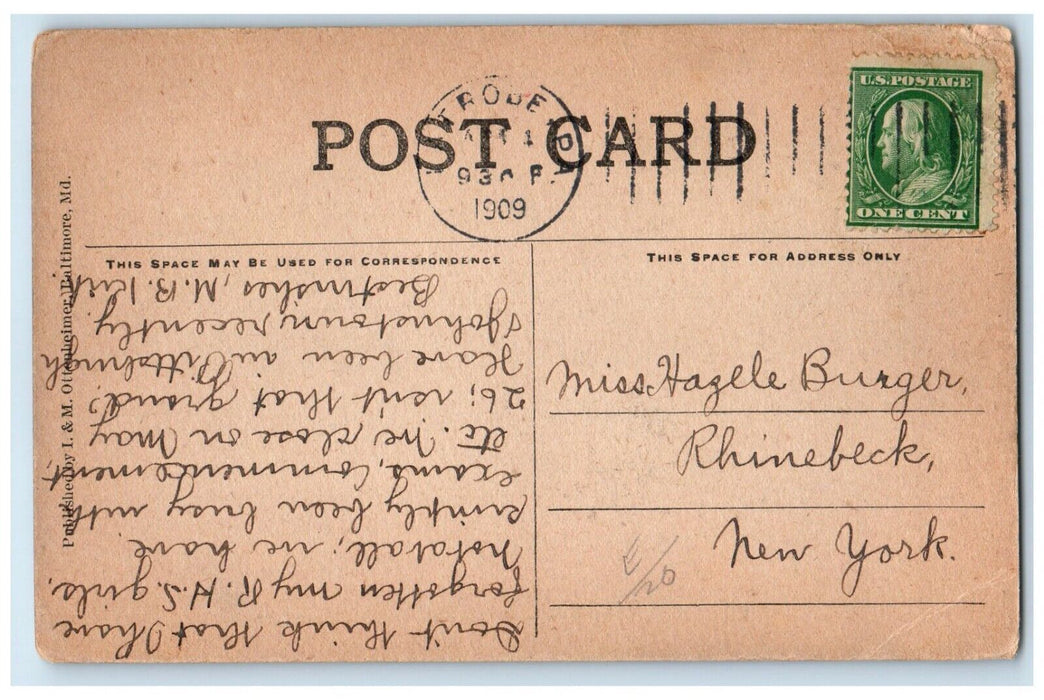 POST CARD
U.S. POSTAGE
ONE CENT
930 P.
1909
Published by I. & M. Ottenheimer, Baltimore, Md.
THIS SPACE MAY BE USED FOR CORRESPONDENCE
THIS SPACE FOR ADDRESS ONLY
Don't think that I have
forgotten my R. H. S. girls.
Not at all; we have
simply been busy with
exams, Commencement,
etc. We close on May
26; isn't that grand?
Have been in Pittsburgh
& Johnstown, recently.
Best wishes, M. B.
Miss Hazele Burger,
Rhinebeck,
New York.
E/20